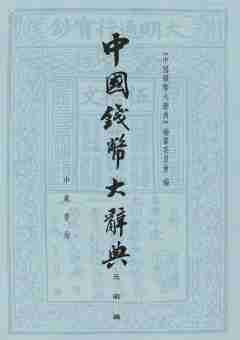 大明通行寶鈔
《中國錢幣大辭典》編纂委員會 編
中國錢幣大辭典
元明編
中華書局